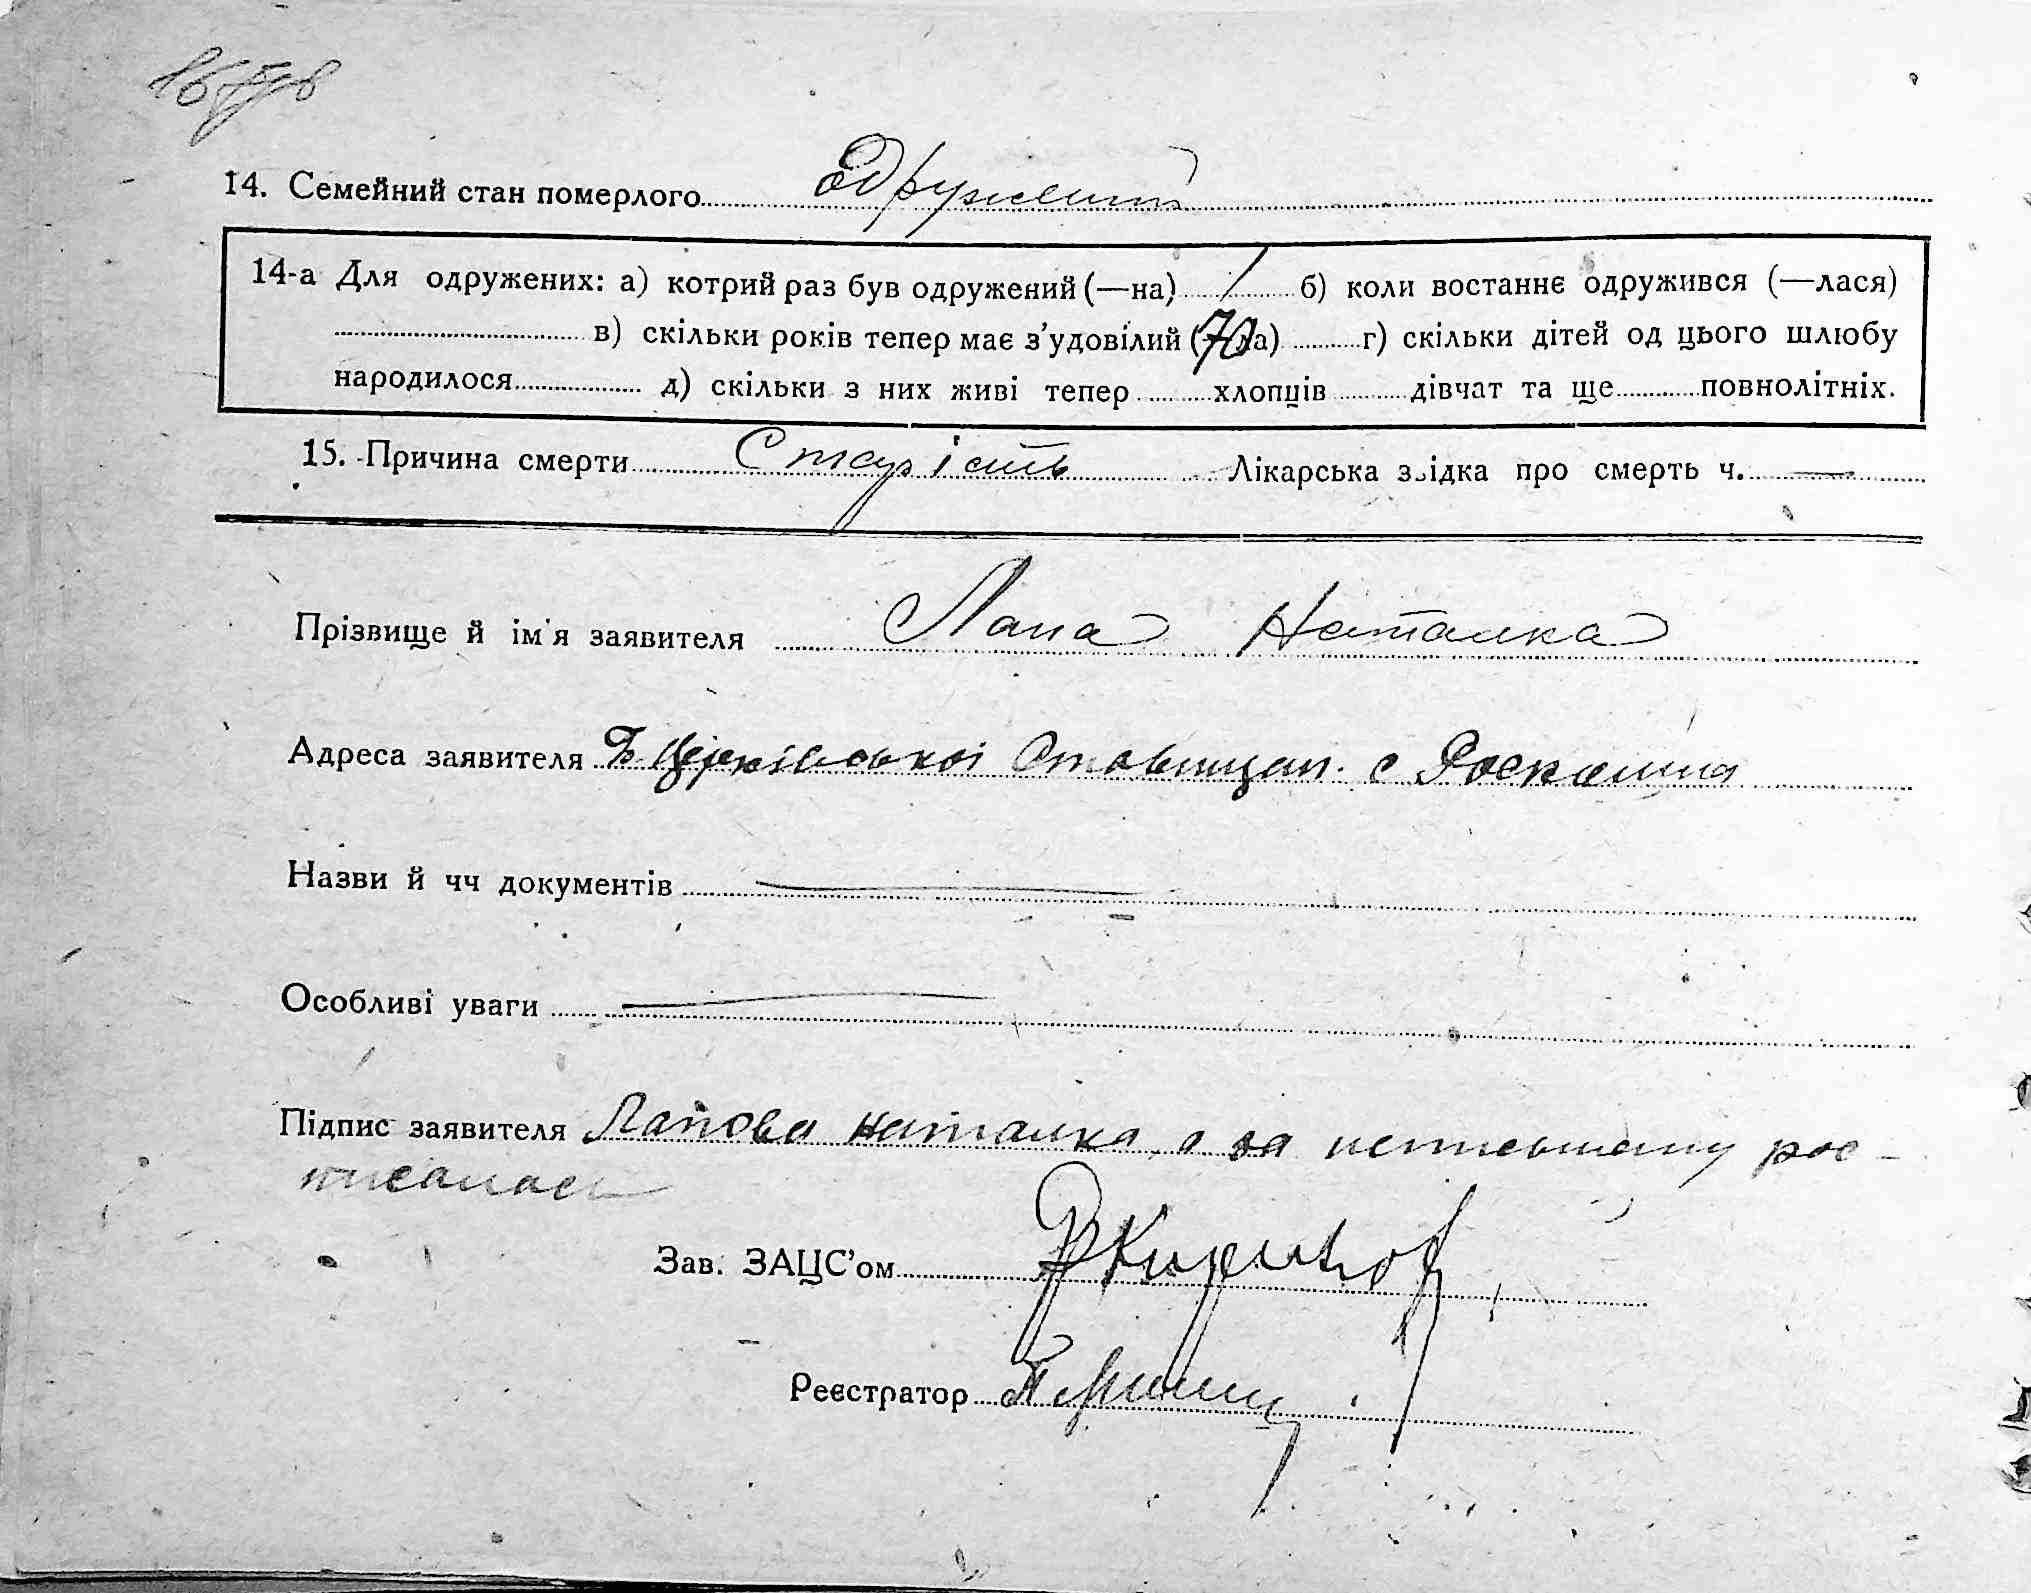 14. Семейний стан померлого Одружений
14-а Для одружених: а) котрий раз був одружений (—на) 1 б) коли востаннє одружився (—лася)
в) скільки років тепер має з'удовілий (70 а) г) скільки дітей од цього шлюбу
народилося д) скільки з них живі тепер хлопців дівчат та ще повнолітніх.
15. Причина смерти Старість Лікарська звідка про смерть ч. —
Прізвище й ім'я заявителя Лапа Наталка
Адреса заявителя Б Церківської Ставищан. с Роскошна
Назви й чч документів —
Особливі уваги —
Підпис заявителя Лапова Наталка, а за неписьмену рос-
писалась
Зав. ЗАЦС'ом
Реєстратор